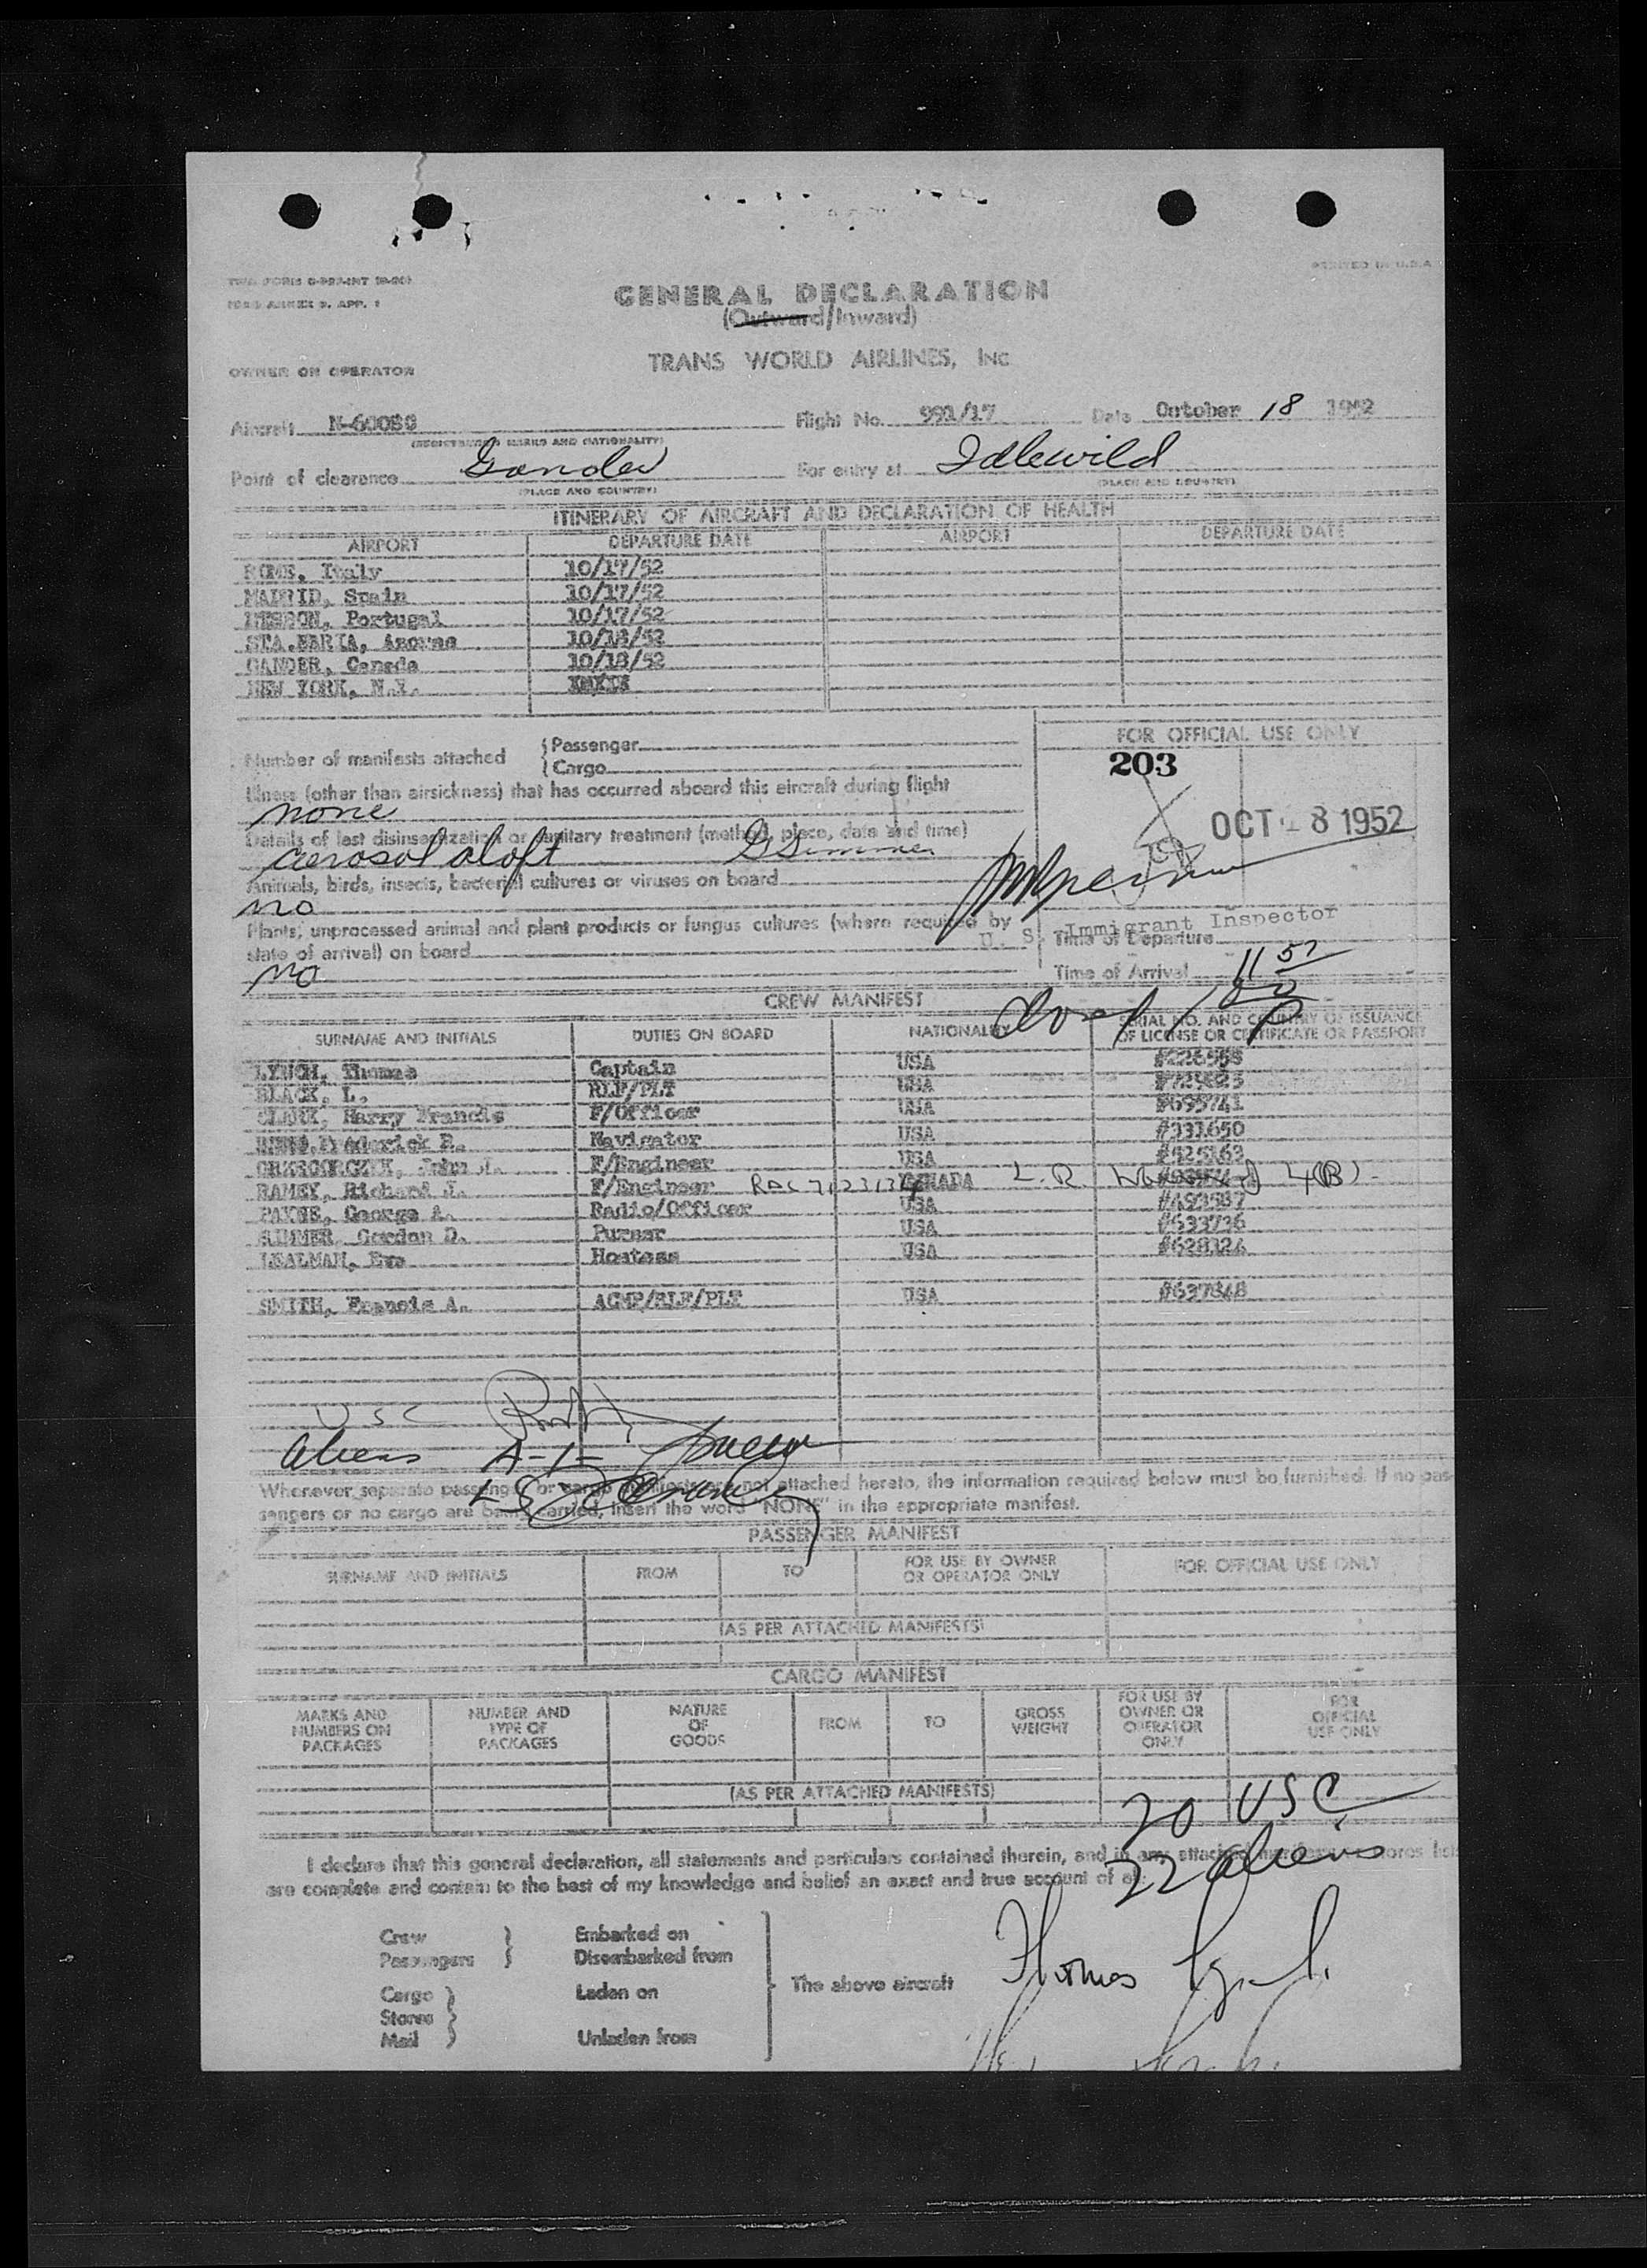 PRINTED IN U.S.A
GENERAL DECLARATION
(Outward/Inward)
TRANS WORLD AIRLINES, INC
OWNER OR OPERATOR
Aircraft Flight No. 991/17 Date October 18 1952
(REGISTRATION MARKS AND NATIONALITY)
Point of clearance Gander For entry at Idlewild
(PLACE AND COUNTRY) (PLACE AND COUNTRY)
ITINERARY OF AIRCRAFT AND DECLARATION OF HEALTH
AIRPORT DEPARTURE DATE AIRPORT DEPARTURE DATE
ROME, Italy 10/17/52
MADRID, Spain 10/17/52
LISBON, Portugal 10/17/52
STA.MARIA, Azores 10/18/52
GANDER, Canada 10/18/52
NEW YORK, N.Y.
Number of manifests attached { Passenger
{ Cargo
FOR OFFICIAL USE ONLY
203
OCT 18 1952
Illness (other than airsickness) that has occurred aboard this aircraft during flight
none
Details of last disinsectization or sanitary treatment (method, place, date and time)
aerosol aloft G Simmer
Animals, birds, insects, bacterial cultures or viruses on board
no
Plants, unprocessed animal and plant products or fungus cultures (where required by
state of arrival) on board
no
U. S. Immigrant Inspector
Time of Departure
Time of Arrival 11 57
CREW MANIFEST
SURNAME AND INITIALS DUTIES ON BOARD NATIONALITY SERIAL NO. AND COUNTRY OF ISSUANCE
OF LICENSE OR CERTIFICATE OR PASSPORT
LYNCH, Thomas Captain USA
BLACK, L. RLF/PLT USA
CLARK, Harry Francis F/Officer USA #695741
Frederick R. Navigator USA #331650
John J. F/Engineer USA #525163
RAMEY, Richard J. F/Engineer CANADA L.R. 4(B)
PAYNE, George A. Radio/Officer USA #493587
SIMMER, Gordon D. Purser USA #633736
LEALMAN, Eve Hostess USA #628324
SMITH, Francis A. ACMP/RLF/PLT USA #637848
USC
Aliens A-1-
Whenever separate passenger or cargo manifests are not attached hereto, the information required below must be furnished. If no pas-
sengers or no cargo are being carried, insert the word "NONE" in the appropriate manifest.
PASSENGER MANIFEST
SURNAME AND INITIALS FROM TO FOR USE BY OWNER
OR OPERATOR ONLY FOR OFFICIAL USE ONLY
(AS PER ATTACHED MANIFESTS)
CARGO MANIFEST
MARKS AND
NUMBERS ON
PACKAGES NUMBER AND
TYPE OF
PACKAGES NATURE
OF
GOODS FROM TO GROSS
WEIGHT FOR USE BY
OWNER OR
OPERATOR
ONLY FOR
OFFICIAL
USE ONLY
(AS PER ATTACHED MANIFESTS)
20 USC
22 aliens
I declare that this general declaration, all statements and particulars contained therein, and in any attached manifests stores list
are complete and contain to the best of my knowledge and belief an exact and true account of all
Crew } Embarked on
Passengers } Disembarked from
Cargo } Laden on
Stores }
Mail } Unladen from
The above aircraft Thomas Lynch